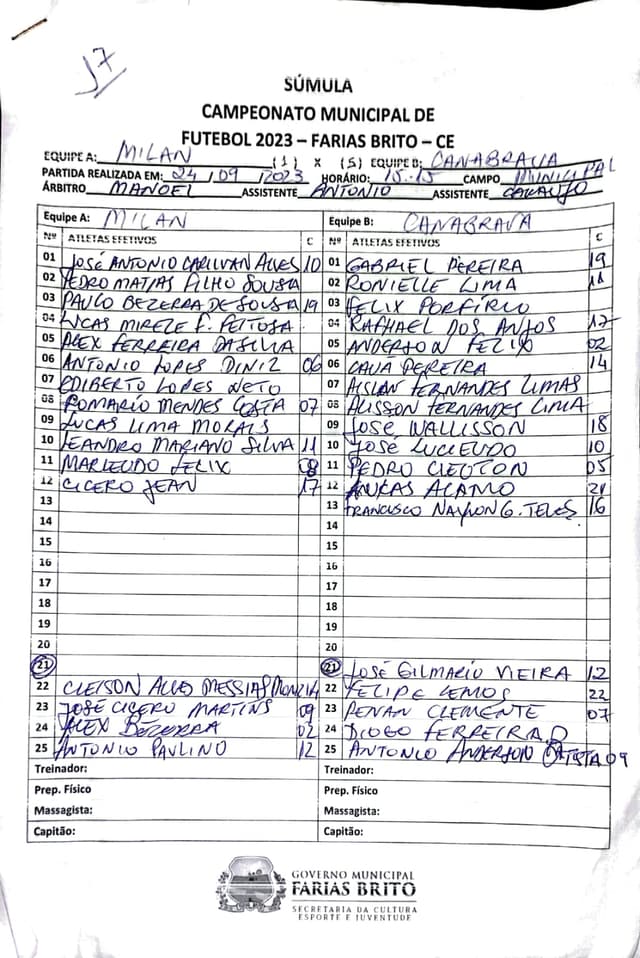 J7
SÚMULA
CAMPEONATO MUNICIPAL DE
FUTEBOL 2023 – FARIAS BRITO – CE
EQUIPE A: MILAN (1) X (5) EQUIPE B: CANABRAVA
PARTIDA REALIZADA EM: 24/09/2023 HORÁRIO: 15:15 CAMPO MUNICIPAL
ÁRBITRO MANOEL ASSISTENTE ANTONIO ASSISTENTE
Equipe A: MILAN Equipe B: CANABRAVA
Nº ATLETAS EFETIVOS C Nº ATLETAS EFETIVOS C
01 JOSÉ ANTONIO CARILVAN ALVES 10 01 GABRIEL PEREIRA 19
02 PEDRO MATIAS FILHO SOUSA 02 RONIELLE LIMA 11
03 PAULO BEZERRA DE SOUSA 19 03 FELIX PORFÍRIO
04 LUCAS MIRELE F. FEITOSA 04 RAPHAEL DOS ANJOS 17
05 ALEX FERREIRA DA SILVA 05 ANDERSON FELIX 02
06 ANTONIO LOPES DINIZ 06 06 CAUÃ PEREIRA 14
07 EDIBERTO LOPES NETO 07 ALSLAN FERNANDES LIMAS
08 ROMARIO MENDES COSTA 07 08 ALISSON FERNANDES LIMA
09 LUCAS LIMA MORAIS 09 JOSÉ WALLISSON 18
10 LEANDRO MARIANO SILVA 11 10 JOSÉ LUCIEUDO 10
11 MARLEUDO FELIX 08 11 PEDRO CLEUTON 05
12 CICERO JEAN 17 12 ALAMO 21
13 13 FRANCISCO NAYLON G. TELES 16
14 14
15 15
16 16
17 17
18 18
19 19
20 20
21 21 JOSÉ GILMARIO VIEIRA 12
22 CLEISON ALVES MESSIAS 22 FELIPE LEMOS 22
23 JOSÉ CICERO MARTINS 09 23 RENAN CLEMENTE 07
24 ALEX BEZERRA 02 24 DIOGO FERREIRA
25 ANTONIO PAULINO 12 25 ANTONIO ANDERSON BATISTA 09
Treinador: Treinador:
Prep. Físico Prep. Físico
Massagista: Massagista:
Capitão: Capitão:
GOVERNO MUNICIPAL
FARIAS BRITO
SECRETARIA DA CULTURA
ESPORTE E JUVENTUDE